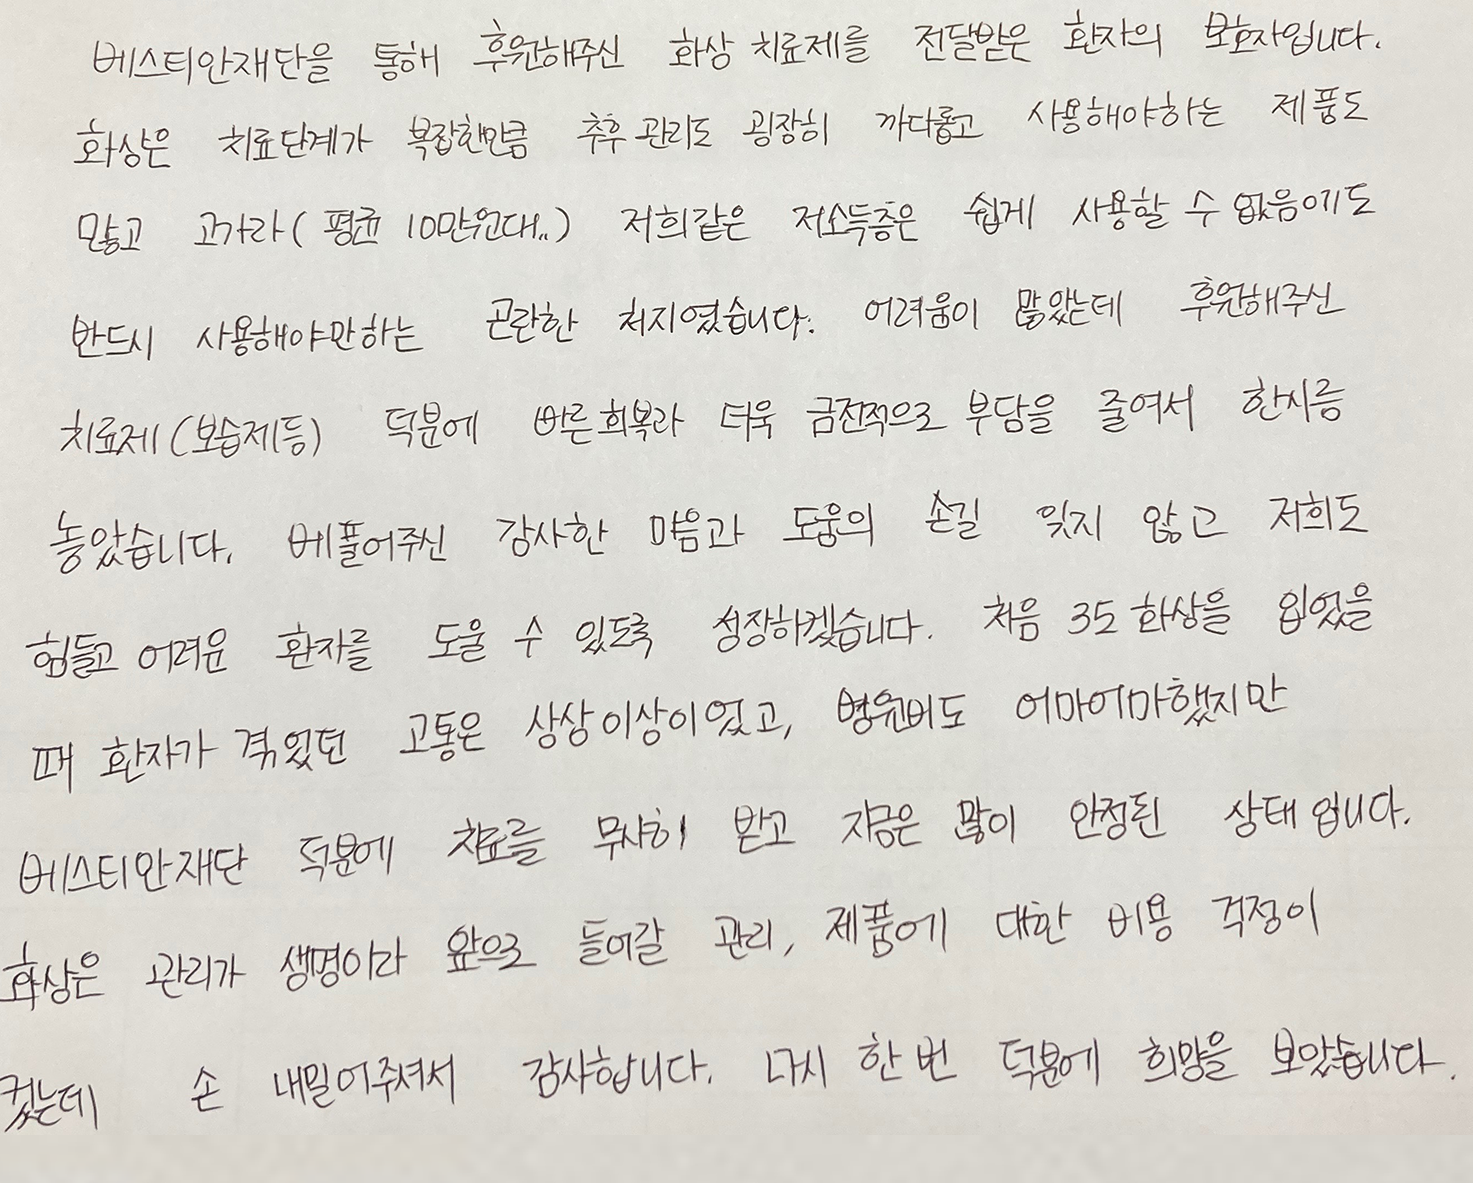 베스티안재단을 통해 후원해주신 화상 치료제를 전달받은 환자의 보호자입니다.
화상은 치료단계가 복잡한만큼 추후 관리도 굉장히 까다롭고 사용해야하는 제품도
많고 고가라(평균 10만원대..) 저희같은 저소득층은 쉽게 사용할 수 없음에도
반드시 사용해야만하는 곤란한 처지였습니다. 어려움이 많았는데 후원해주신
치료제(보습제등) 덕분에 빠른회복과 더욱 금전적으로 부담을 줄여서 한시름
놓았습니다. 베풀어주신 감사한 마음과 도움의 손길 잊지 않고 저희도
힘들고 어려운 환자를 도울 수 있도록 성장하겠습니다. 처음 3도 화상을 입었을
때 환자가 겪었던 고통은 상상이상이었고, 병원비도 어마어마했지만
베스티안재단 덕분에 치료를 무사히 받고 지금은 많이 안정된 상태입니다.
화상은 관리가 생명이라 앞으로 들어갈 관리, 제품에 대한 비용 걱정이
컸는데 손 내밀어주셔서 감사합니다. 다시 한번 덕분에 희망을 보았습니다.